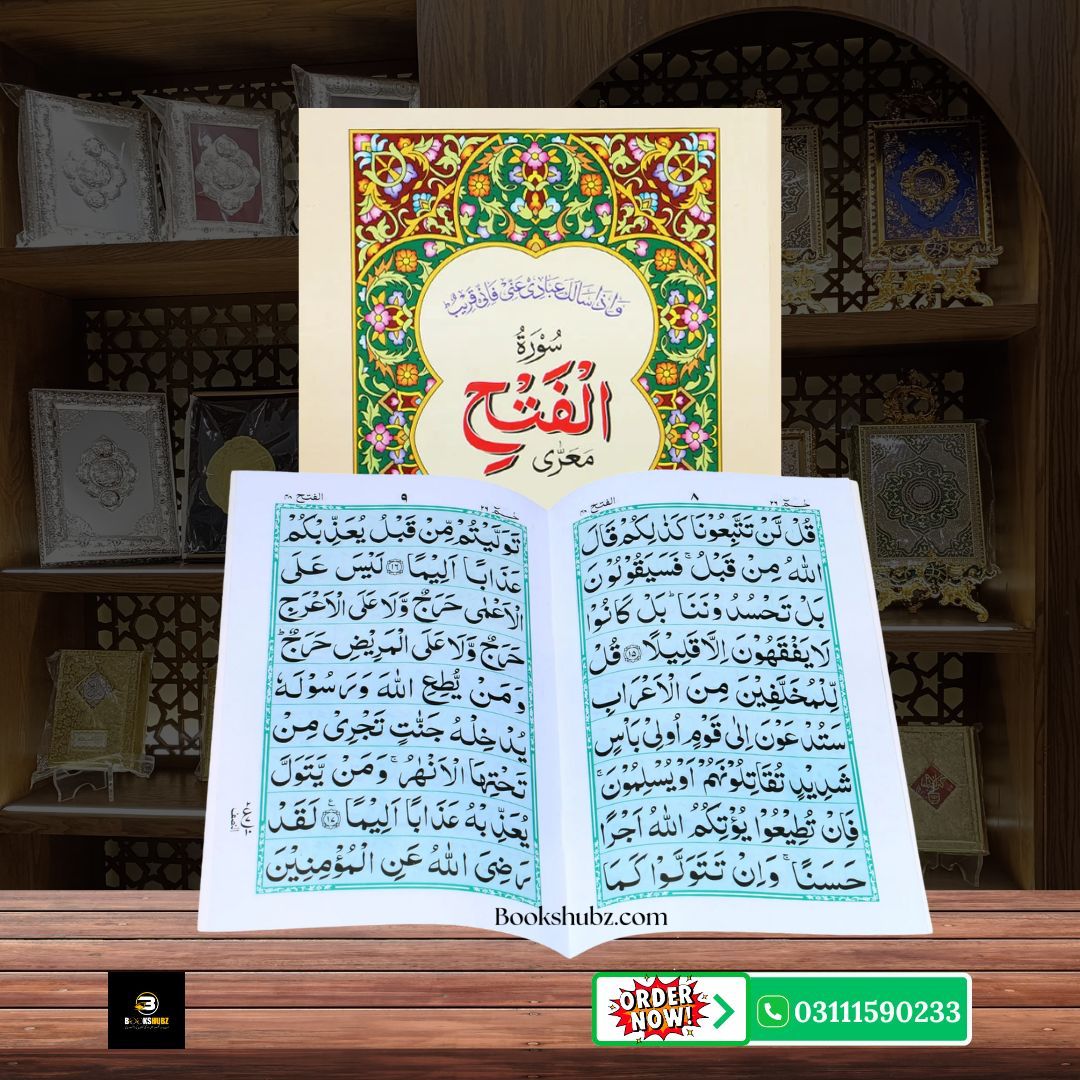 وَاِذَا سَاَلَكَ عِبَادِیْ عَنِّیْ فَاِنِّیْ قَرِیْبٌ ؕ
سُوْرَةُ
الْفَتْحِ
مَعَرّٰی
حٰمٓ ٢٦
٨
الفتح ٤٨
قُلْ لَّنْ تَتَّبِعُوْنَا كَذٰلِكُمْ قَالَ
اللّٰهُ مِنْ قَبْلُ ۚ فَسَیَقُوْلُوْنَ
بَلْ تَحْسُدُوْنَنَا ؕ بَلْ كَانُوْا
لَا یَفْقَهُوْنَ اِلَّا قَلِیْلًا ﴿١٥﴾ قُلْ
لِّلْمُخَلَّفِیْنَ مِنَ الْاَعْرَابِ
سَتُدْعَوْنَ اِلٰی قَوْمٍ اُولِیْ بَاْسٍ
شَدِیْدٍ تُقَاتِلُوْنَهُمْ اَوْ یُسْلِمُوْنَ ۚ
فَاِنْ تُطِیْعُوْا یُؤْتِكُمُ اللّٰهُ اَجْرًا
حَسَنًا ۚ وَاِنْ تَتَوَلَّوْا كَمَا
حٰمٓ ٢٦
٩
الفتح ٤٨
تَوَلَّیْتُمْ مِّنْ قَبْلُ یُعَذِّبْكُمْ
عَذَابًا اَلِیْمًا ﴿١٦﴾ لَیْسَ عَلَی
الْاَعْمٰی حَرَجٌ وَّلَا عَلَی الْاَعْرَجِ
حَرَجٌ وَّلَا عَلَی الْمَرِیْضِ حَرَجٌ ؕ
وَمَنْ یُّطِعِ اللّٰهَ وَرَسُوْلَهٗ
یُدْخِلْهُ جَنّٰتٍ تَجْرِیْ مِنْ
تَحْتِهَا الْاَنْهٰرُ ۚ وَمَنْ یَّتَوَلَّ
یُعَذِّبْهُ عَذَابًا اَلِیْمًا ﴿١٧﴾ لَقَدْ
رَضِیَ اللّٰهُ عَنِ الْمُؤْمِنِیْنَ
Bookshubz.com
BOOKSHUBZ
ORDER
NOW!
03111590233